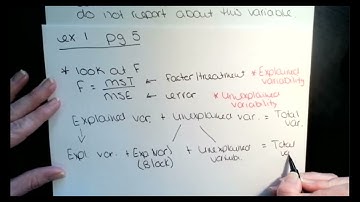 do not report about this variable.
ex 1 pg 5
* look at F
F = MST ← factor/treatment * Explained variability
MSE ← error * Unexplained variability
Explained var. + Unexplained var. = Total var.
Expl. var. + Exp Var + Unexplained = Total
(Block) variab. va